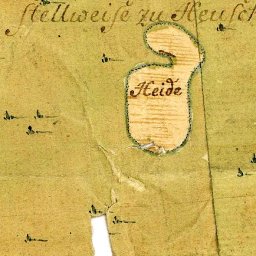 stellweise zu Heusch
Heide